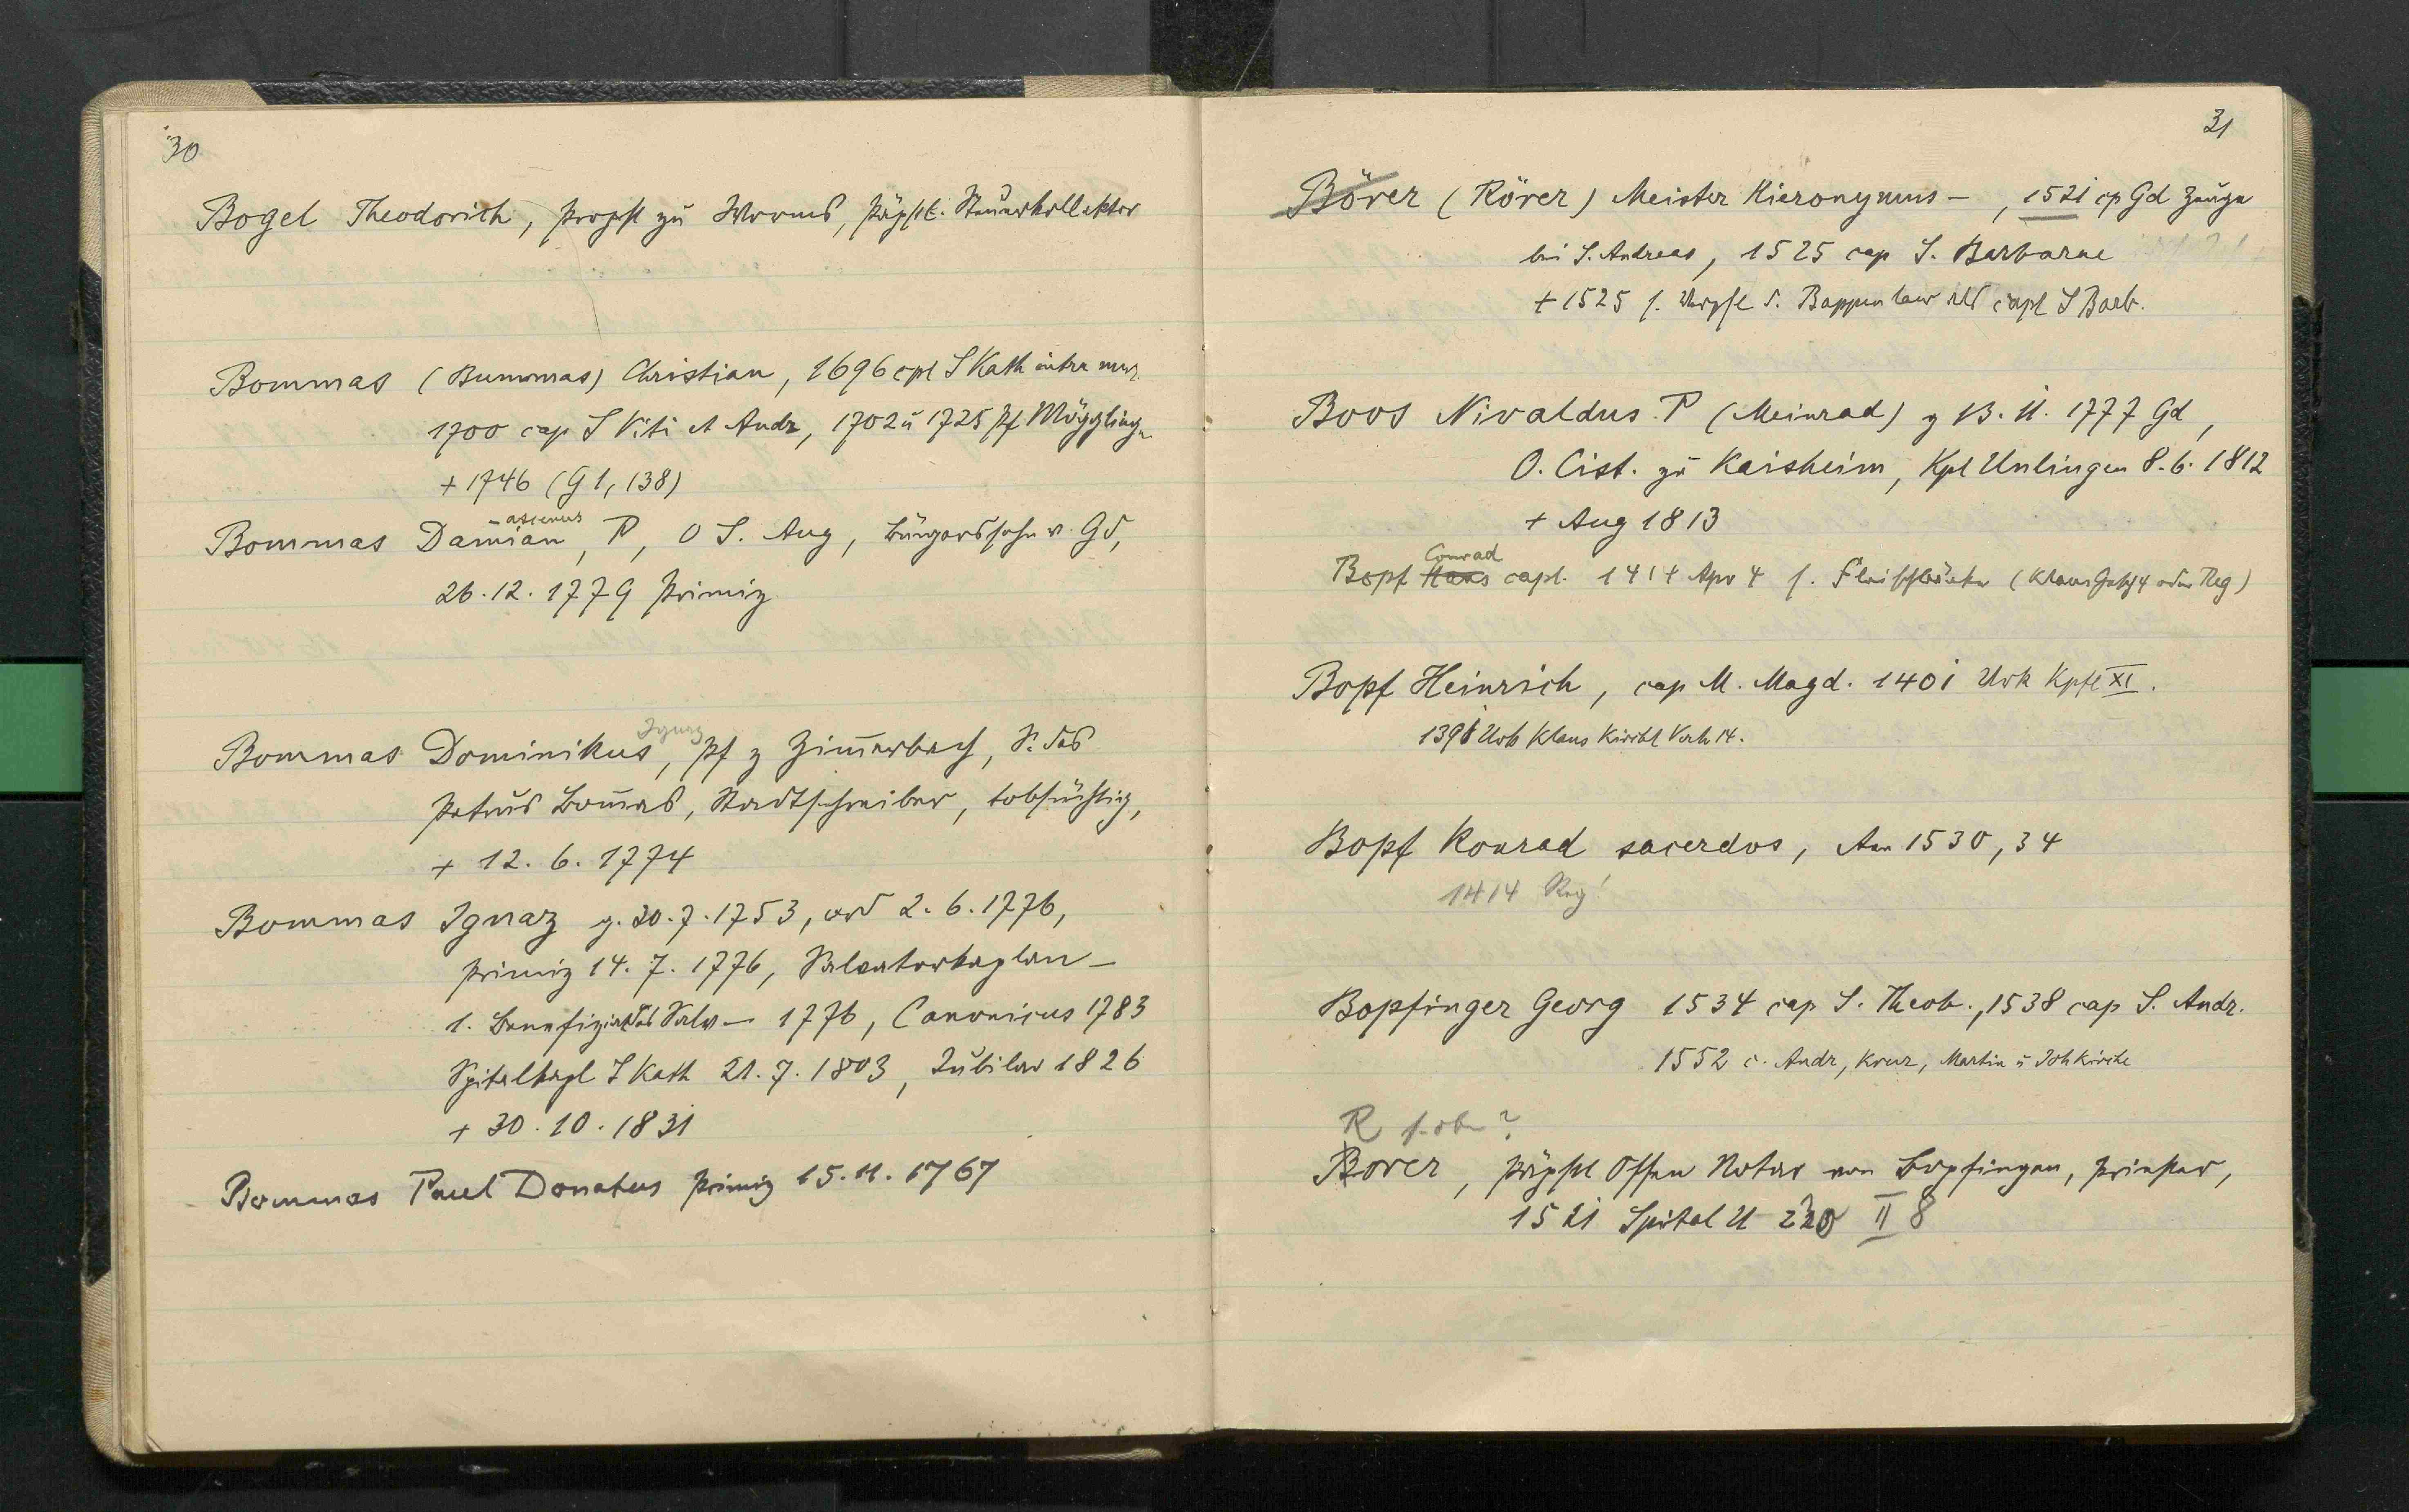 30
Bogel Theodorich, Propst zu Worms, päpstl. Steuerkollektor
Bommas (Bummas) Christian, 1696 cpl S Kath intra mur.
1700 cap S Viti et Andr, 1702 u 1725 Pf Mögglingen
+ 1746 (G 1, 138)
Bommas Damian, P, O S. Aug, Bürgerssohn v. Gd,
- ascenus
26.12.1779 Primiz
Ignaz
Bommas Dominikus, Pf z Zimerbach, S. des
Petrus Bomas, Stadtschreiber, tobsüchtig,
+ 12. 6. 1774
Bommas Ignaz g. 30.7.1753, ord 2.6.1776,
Primiz 14. 7. 1776, Salvatorkaplan -
1. Benefiziat des Salv - 1776, Canonicus 1783
Spitalkapl S Kath 21. 7. 1803, Jubilar 1826
+ 30. 10. 1831
Bommas Paul Donatus Primiz 15. 11. 1767
31
Börer (Rörer) Meister Hieronymus -, 1521 cp Gd Zeuge
bei S. Andreas, 1525 cap S. Barbarae
+ 1525 s. Bappenlaw als capl S Barb.
Boos Nivaldus P (Meinrad) g 13. 11. 1777 Gd,
O. Cist. zu Kaisheim, Kpl Unlingen 8. 6. 1812
+ Aug 1813
Conrad
Bopf Hans capl. 1414 Apr 4 s. (Klaus oder Reg)
Bopf Heinrich, cap M. Magd. 1401 Urk Kpfl XI.
1398 Urb Klaus Kirchl 14.
Bopf Konrad sacerdos, Ann 1530, 34
1414 Reg!
Bopfinger Georg 1534 cap S. Theob., 1538 cap S. Andr.
1552 c. Andr, Kreuz, Martin u Joh kirche
R s. oben?
Borer, päpstl Offen Notar von Bopfingen, Priester,
1521 Spital U 220 II 8